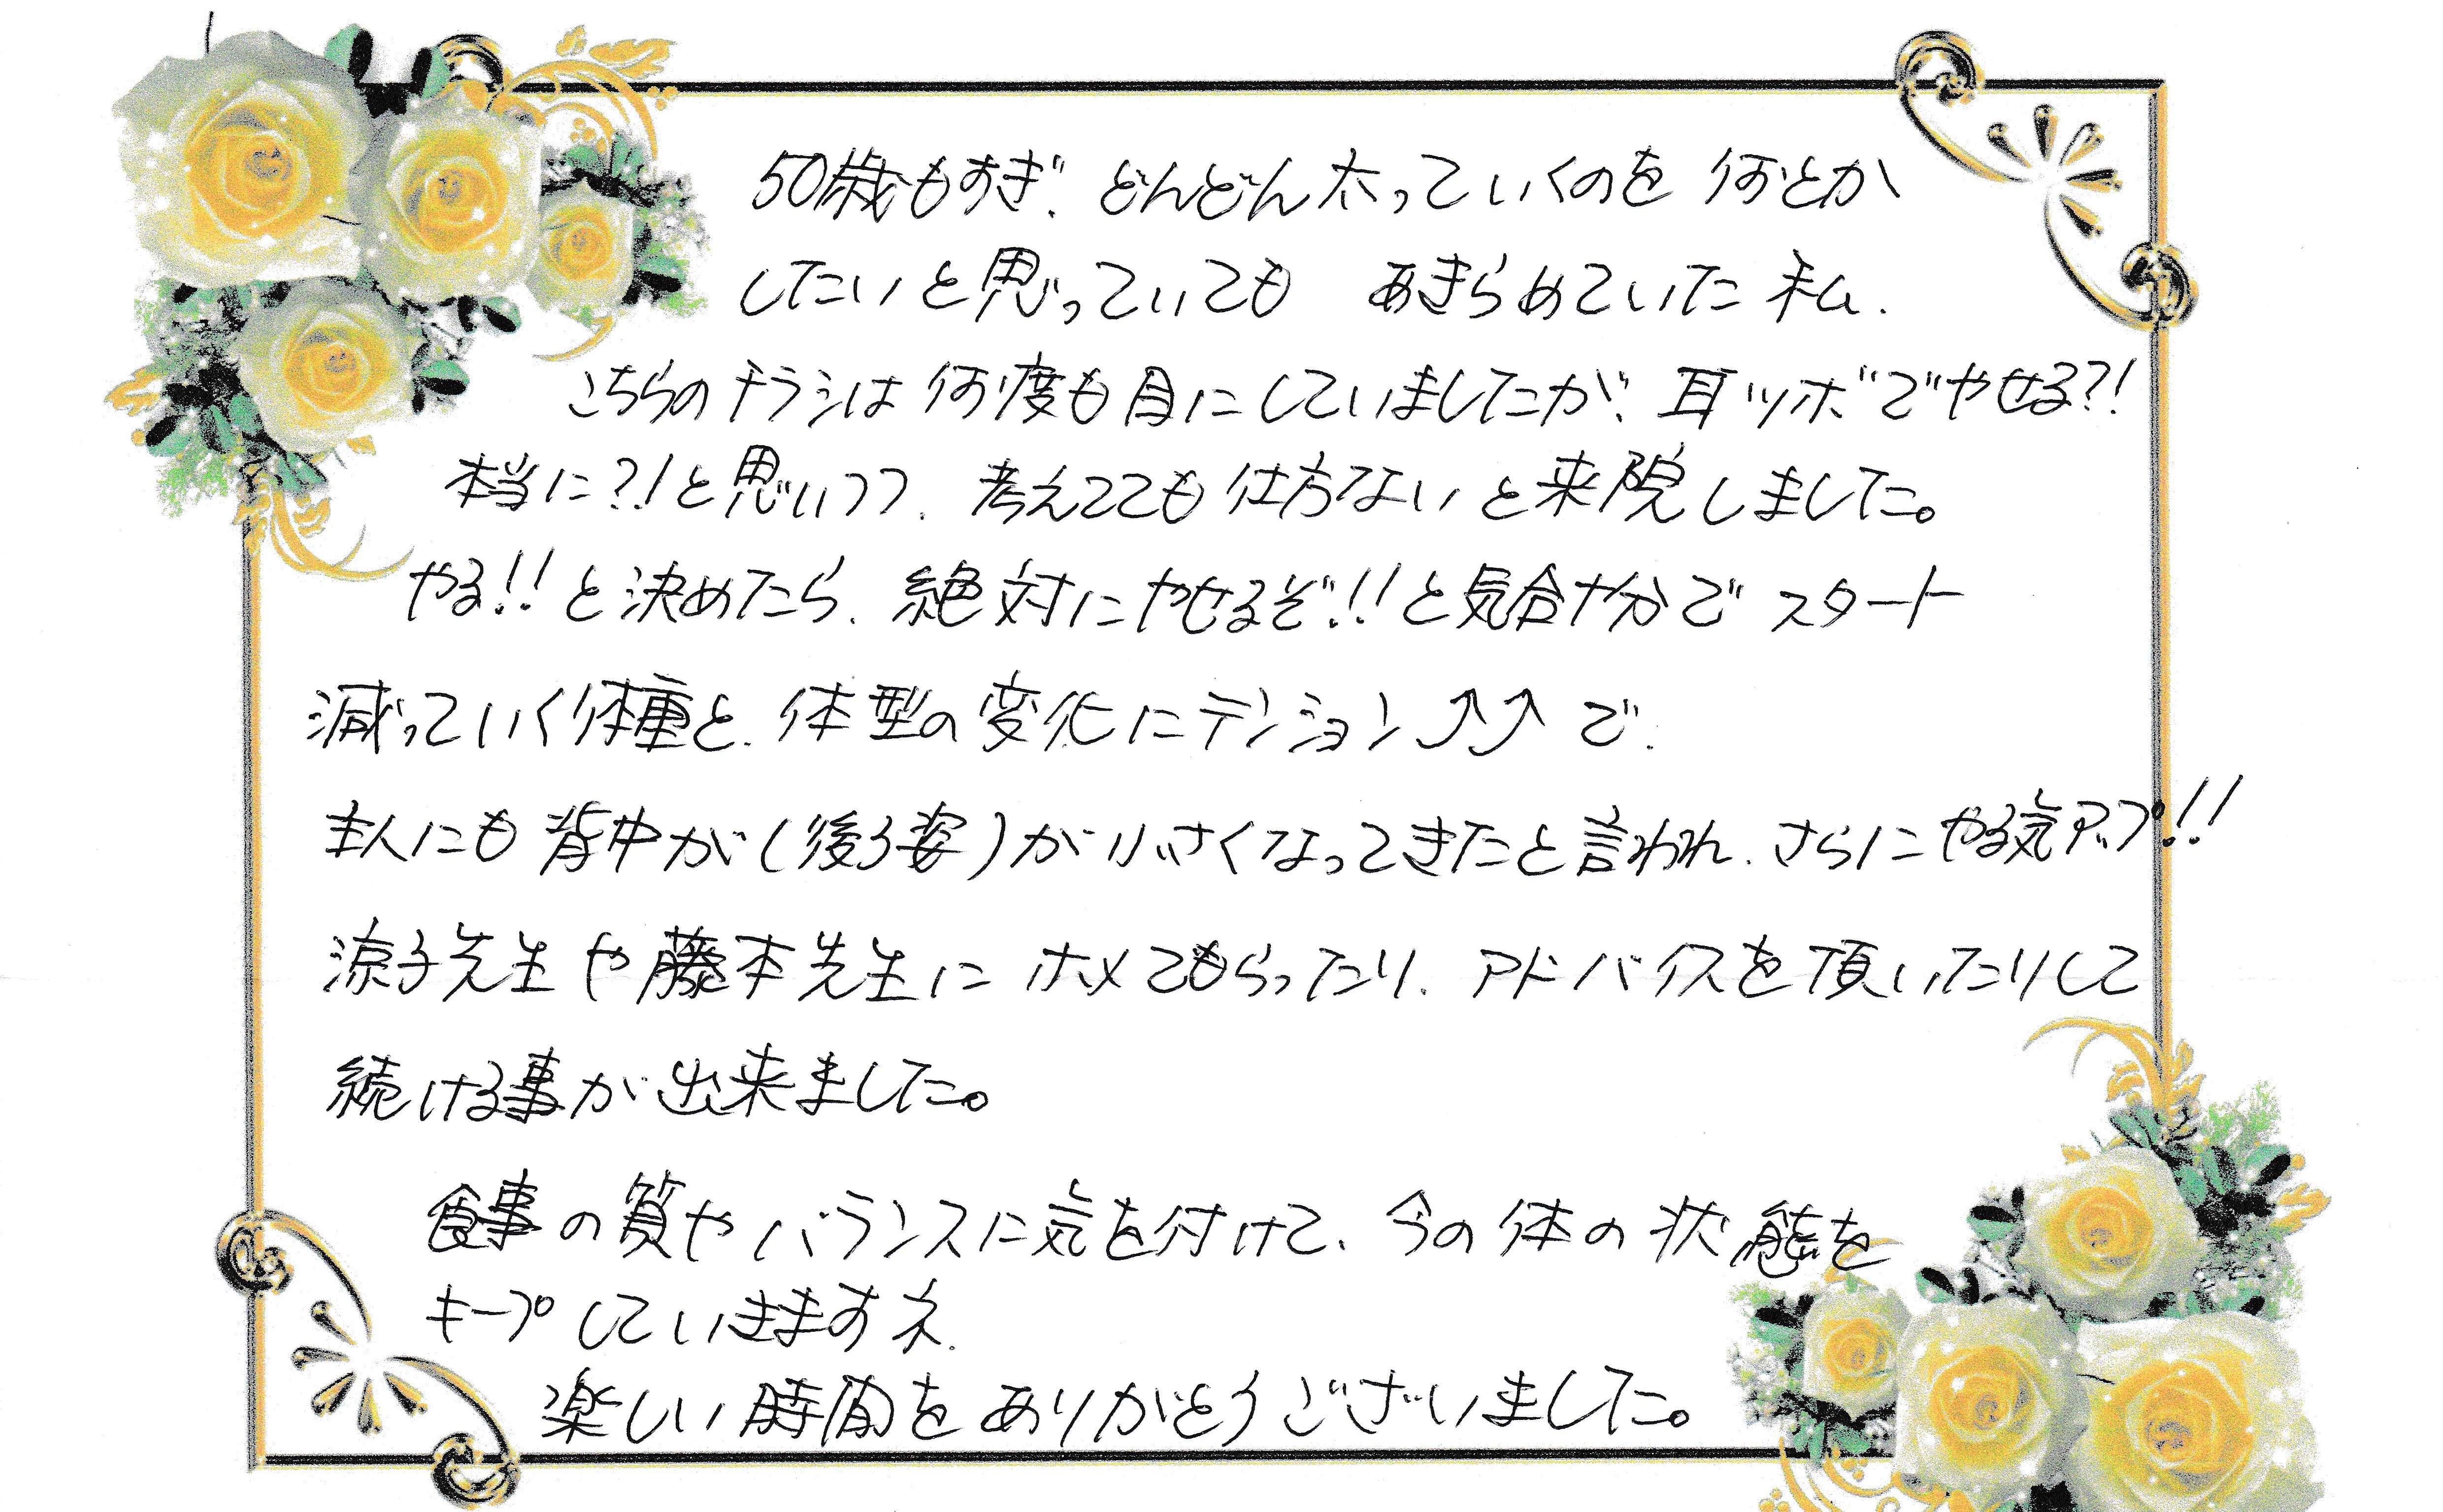 50歳もすぎ、どんどん太っていくのを何とか
したいと思っていても あきらめていた私、
こちらのチラシは何度も目にしていましたが、耳ツボでやせる?!
本当に?!と思いつつ、考えてても仕方ないと来院しました。
やる!!と決めたら、絶対にやせるぞ!!と気合十分で スタート
減っていく体重と、体型の変化にテンション⤴⤴で、
主人にも背中が(後ろ姿)が小さくなってきたと言われ、さらにやる気アップ!!
涼子先生や藤本先生に ホメてもらったり、アドバイスを頂いたりして
続ける事が出来ました。
食事の質やバランスに気を付けて、今の体の状態を
キープしていきますネ、
楽しい時間をありがとうございました。